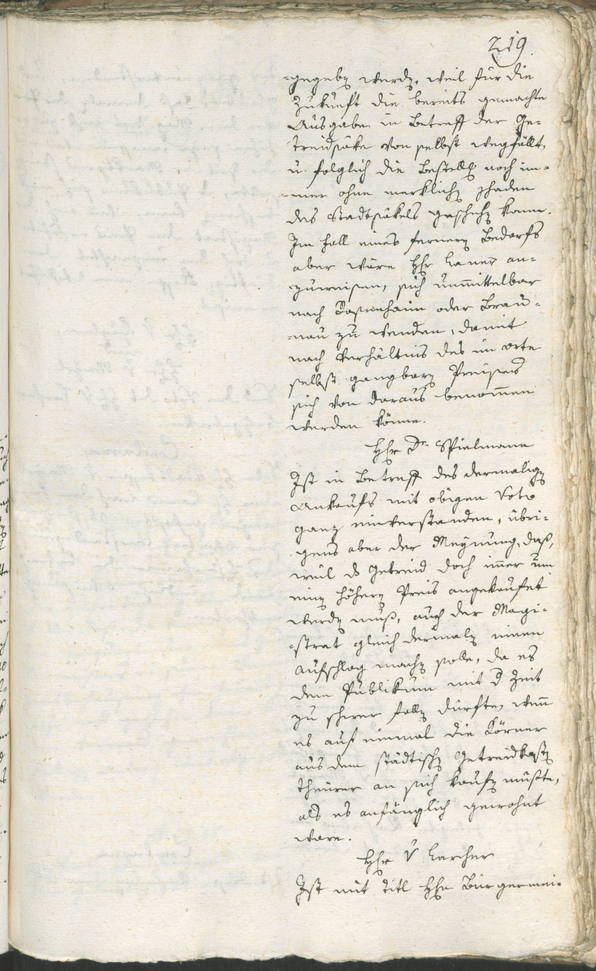 219.
gegeben werden, weil für die
Zukunft die bereits gemachte
Ausgabe in Betreff der Ge-
treidsäke von selbst wegfällt,
u. folglich die Bestellg noch im-
mer ohne merklichen Schaden
des Stadtsäkels geschehen kann.
Im Fall eines fernern Bedarfs
aber wäre Hhr Laner an-
zuweisen, sich unmittelbar
nach Rosenhaim oder Brau-
nau zu wenden, damit
nach Verhältnis des im Orte
selbst gangbaren Preises
sich von daraus benommen
werden könne.
Hhr Dr. Spielmann
Ist in Betreff des dermaligen
Ankaufs mit obigen Voto
ganz einverstanden, übri-
gens aber der Meynung, daß,
weil ds Getreid doch immer um
einen höhern Preis angekaufet
werden muß, auch der Magi-
strat gleich dermalen einen
Aufschlag machen solle, da es
dem Publikum mit d Zeit
zu schwer fallen dürfte, wenn
es auf einmal die Körner
aus dem städtischen Getreidkasten
theurer an sich kaufen müßte,
als es anfänglich gewohnt
ware.
Hhr v Lercher
Ist mit Titl Hhn Bürgermei-